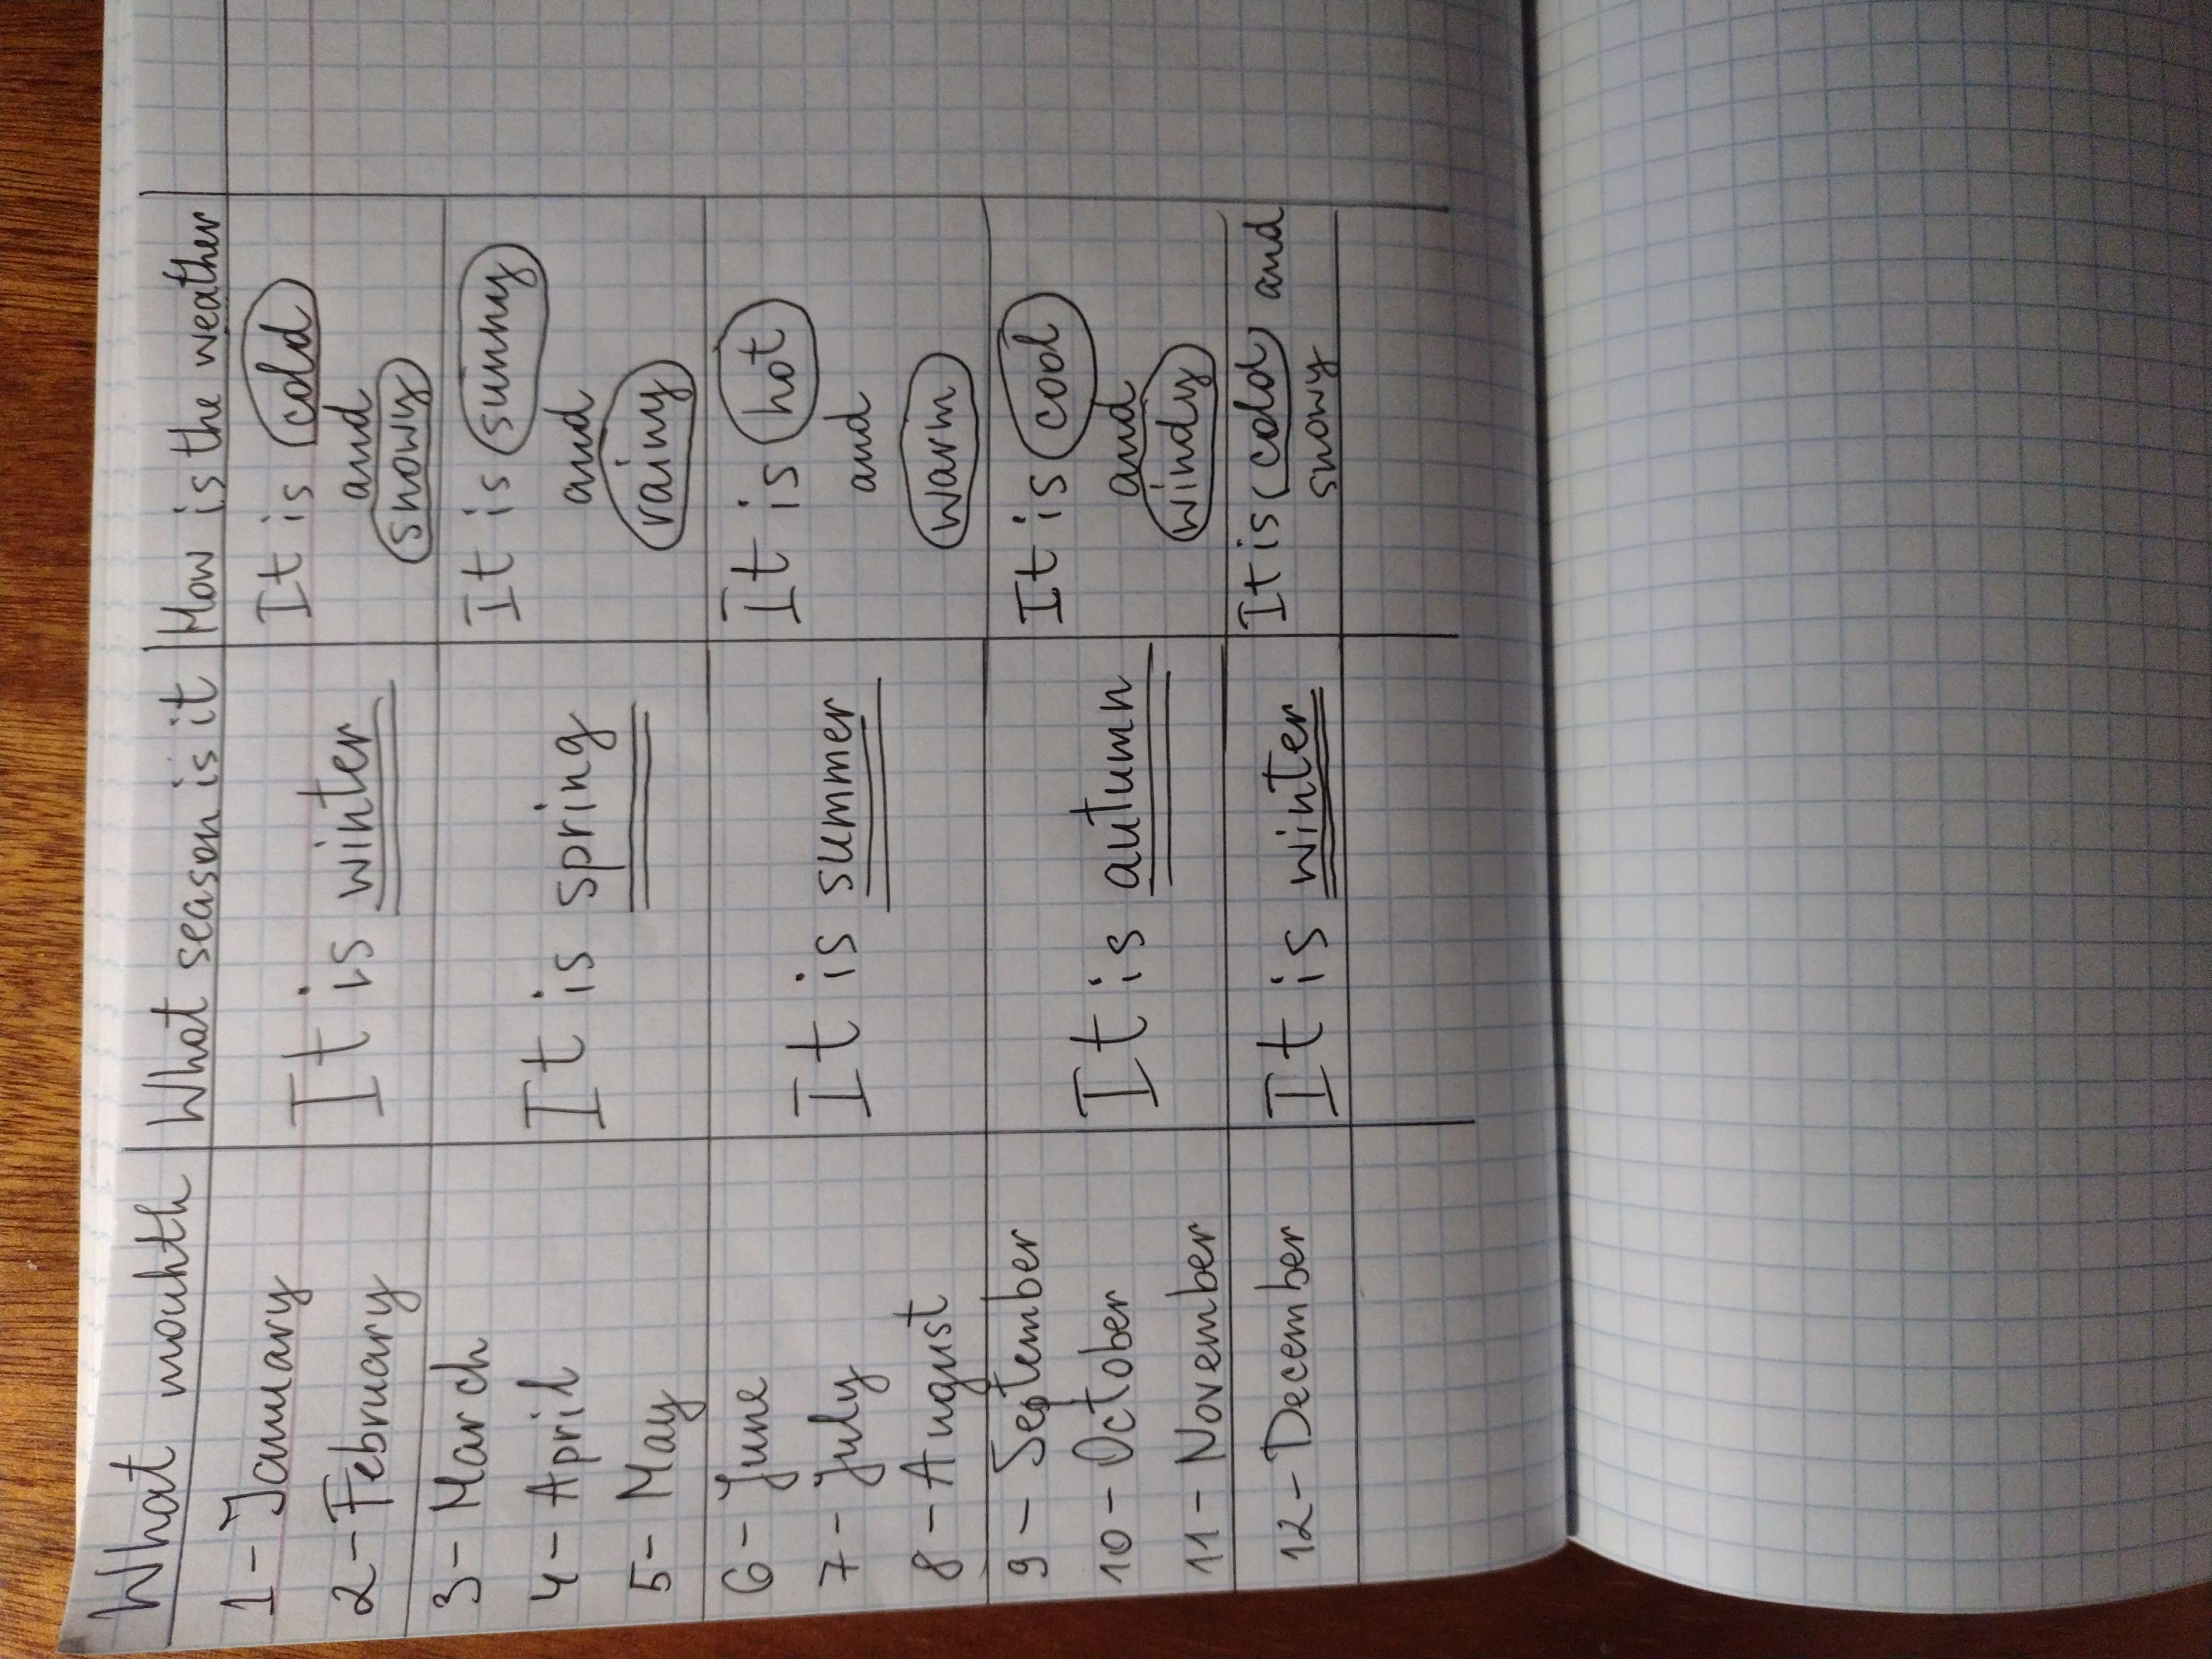 What mounth What season is it How is the weather
1 - January
2 - February
It is winter
It is cold
and
snowy
3 - March
4 - April
5 - May
It is spring
It is sunny
and
rainy
6 - June
7 - July
8 - August
It is summer
It is hot
and
warm
9 - September
10 - October
11 - November
It is autumn
It is cool
and
windy
12 - December
It is winter
It is cold and
snowy